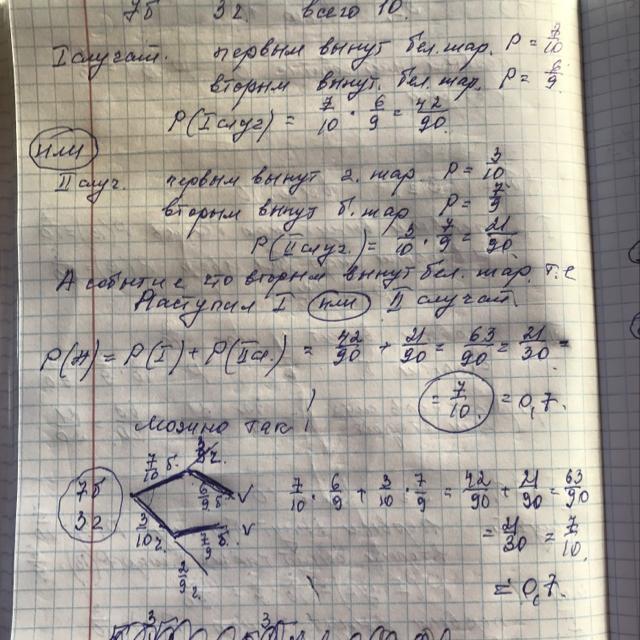 7б 3г всего 10.
I случай. первым вынут бел. шар. P = 7/10
вторым вынут. бел. шар. P = 6/9
P(I случ) = 7/10 · 6/9 = 42/90.
или
II случ. первым вынут г. шар P = 3/10
вторым вынут б. шар P = 7/9
P(II случ) = 3/10 · 7/9 = 21/90.
A событие что вторым вынут бел. шар. т.е
Наступил I или II случай.
P(A) = P(I) + P(II сл.) = 42/90 + 21/90 = 63/90 = 21/30 =
= 7/10 = 0,7.
Можно так!
7б 3г
7/10 б. 3/9 г.
6/9 б V
3/10 г. 7/9 б. V
2/9 г.
7/10 · 6/9 + 3/10 · 7/9 = 42/90 + 21/90 = 63/90
= 21/30 = 7/10
= 0,7.